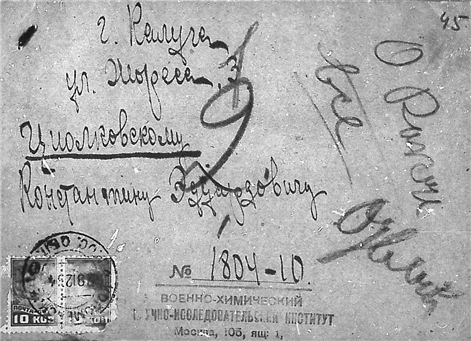 45
г. Калуга
ул. Жореса, 3
Циолковскому
Константину Эдуардовичу
О
Все
№ 1804-10.
ВОЕННО-ХИМИЧЕСКИЙ
НАУЧНО-ИССЛЕДОВАТЕЛЬСКИЙ ИНСТИТУТ
Москва, 105, ящ: 1,
10 КОП